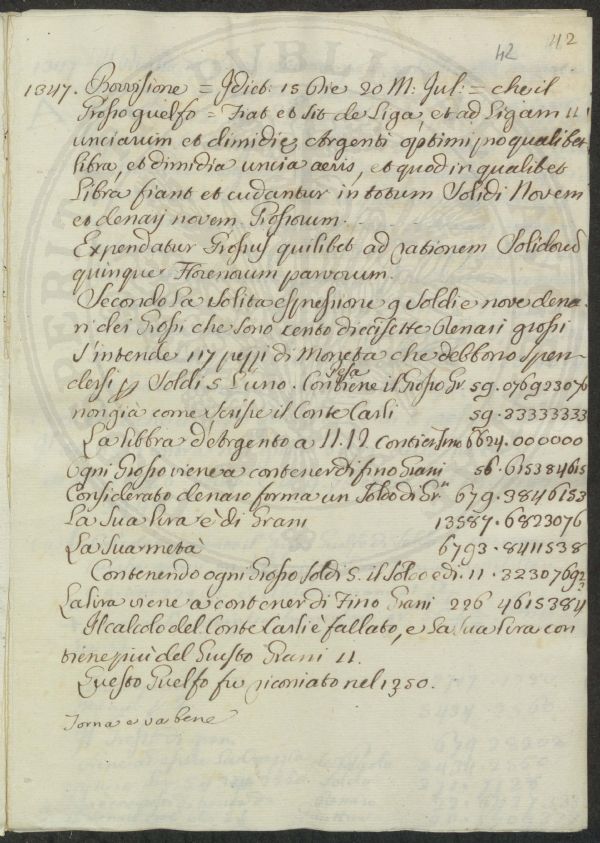 42 42
1347. Provvisione = Jdict: 15 Die 20 M: Jul: = che il
Grosso guelfo = Fiat et sit de Liga, et ad Ligam 11
unciarum et dimidie Argenti optimi pro qualibet
libra, et dimidia uncia aeris, et quod in qualibet
Libra fiant et cudantur in totum Solidi Novem
et denarij novem Grossorum.
Expendatur Grossus quilibet ad rationem Solidorum
quinque Florenorum parvorum.
Secondo la solita espressione 9 Soldi e nove dena-
ri dei Grossi che sono cento diecisette Denari grossi
s'intende 117 pezzi di Moneta che debbono spen-
dersi p Soldi 5 l'uno. Contiene il Grosso Gr 59.076923076
Pesa
non già come scrisse il Conte Carli 59.23333333
La libbra d'Argento a 11.12 contien fino Gr 6624.000000
Ogni Grosso viene a contener di fino Grani 56.615384615
Considerato denaro forma un Soldo di Grni 679.3846153
La sua lira è di Grani 13587.6823076
La sua metà 6793.8411538
Contenendo ogni Grosso Soldi 5. il Soldo è di 11.323076923
La lira viene a contener di Fino Grani 226.4615384
Il calcolo del Conte Carli è fallato, e la sua lira con
tiene più del Giusto Grani 11.
Questo Guelfo fu riconiato nel 1350.
Torna e va bene